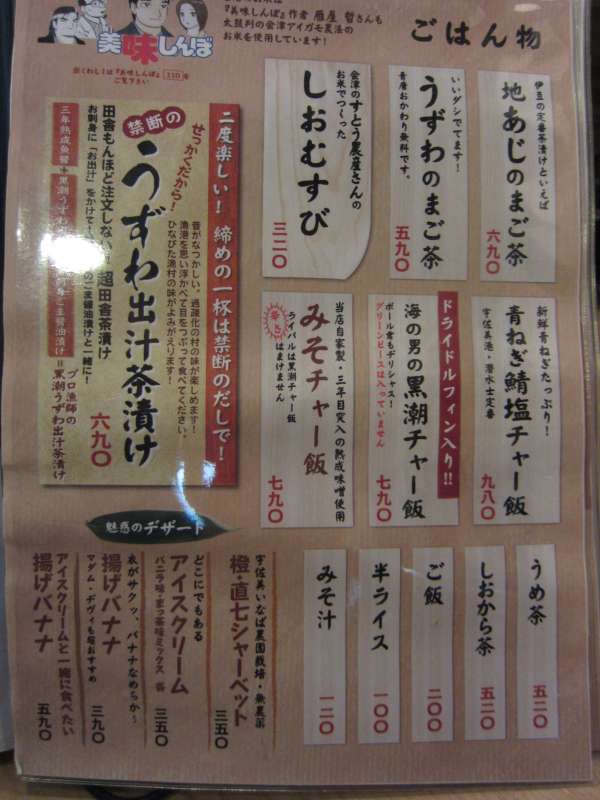 『美味しんぼ』作者 雁屋 哲さんも
太鼓判の会津アイガモ農法の
お米を使用しています！
美味しんぼ
詳しくは『美味しんぼ』110巻
ご覧下さい
ごはん物
伊豆の定番茶漬けといえば
地あじのまご茶
六九〇
いいダシでてます！
うずわのまご茶
青唐おかわり無料です。
五九〇
会津のすとう農産さんの
お米でつくった
しおむすび
三二〇
二度楽しい！ 締めの一杯は禁断のだしで！
せっかくだから！
昔がなつかしい。過疎化の村の味が楽しめます！
漁港を思い浮かべて目をつぶって食べてください。
ひなびた漁村の味がよみがえります！
禁断の
うずわ出汁茶漬け
六九〇
田舎もんほど注文しない 超田舎茶漬け
お刺身に「お出汁」をかけて！
のごま醤油漬けと一緒に！
三年熟成魚醤＋黒潮うずわ
ごま醤油漬け
＝
プロ漁師の
黒潮うずわ出汁茶漬け
新鮮青ねぎたっぷり！
青ねぎ鯖塩チャー飯
宇佐美港・潜水士定番
九八〇
ドライドルフィン入り!!
海の男の黒潮チャー飯
ポール君もデリシャス！
グリーンピースは入っていません
七九〇
当店自家製・三年目突入の熟成味噌使用
みそチャー飯
ライバルは黒潮チャー飯
辛さはまけません
七九〇
うめ茶
五二〇
しおから茶
五二〇
ご飯
二〇〇
半ライス
一〇〇
みそ汁
一二〇
魅惑のデザート
宇佐美いなば農園栽培・無農薬
橙・直七シャーベット
三五〇
どこにでもある
アイスクリーム
バニラ味・まっ茶味ミックス 各
三五〇
衣がサクッ、バナナなめらか〜
揚げバナナ
マダム・デヴィも超おすすめ
三九〇
アイスクリームと一緒に食べたい
揚げバナナ
五九〇